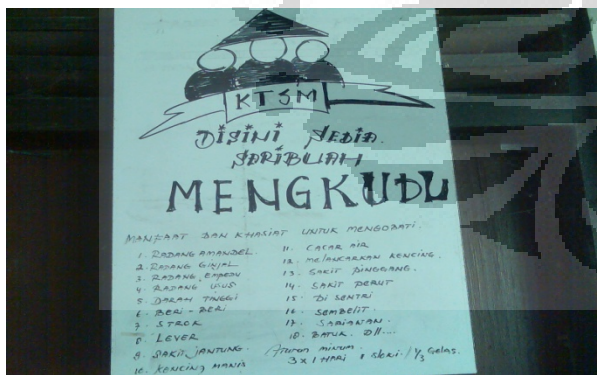 KTSM
DISINI SEDIA
SARIBUAH
MENGKUDU
MANFAAT DAN KHASIAT UNTUK MENGOBATI.
1. RADANG AMANDEL.
2. RADANG GINJAL
3. RADANG EMPEDU
4. RADANG USUS
5. DARAH TINGGI
6. BERI - BERI
7. STROK
8. LEVER
9. SAKIT JANTUNG.
10. KENCING MANIS
11. CACAR AIR
12. MELANCARKAN KENCING.
13. SAKIT PINGGANG.
14. SAKIT PERUT
15. DISENTRI
16. SEMBELIT
17. SARIAWAN.
18. BATUK. Dll....
Aturan minum.
3 x 1 HARI 1 Sloki / 1/3 Gelas.